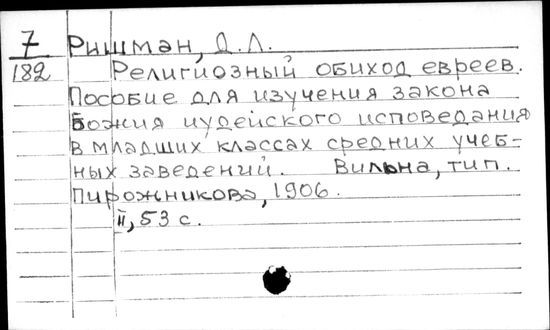 7 Ришман, Д. Л.
182 Религиозный обиход евреев.
Пособие для изучения закона
Божия иудейского исповедания
в младших классах средних учеб-
ных заведений. Вильна, тип.
Пирожникова, 1906.
II, 53 с.